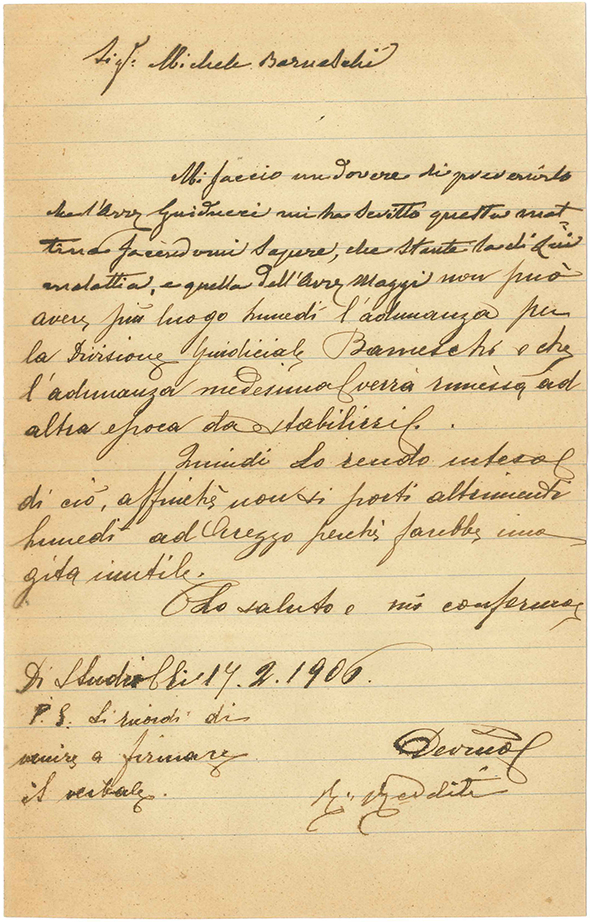 Sigr. Michele Barneschi
Mi faccio un dovere di prevenirlo
che l'Avv. Guiducci mi ha scritto questa mat-
tina facendomi sapere, che stante la di Lui
malattia, e quella dell'Avv. Maggi non può
avere più luogo lunedì l'adunanza per
la Divisione Giudiciale Barneschi e che
l'adunanza medesima verrà rimessa ad
altra epoca da stabilirsi.
Quindi Lo rendo inteso
di ciò, affinchè non si porti altrimenti
lunedì ad Arezzo perchè farebbe una
gita inutile.
Lo saluto e mi confermo
Di Studio li 17.2.1906.
P.S. Si ricordi di
venire a firmare
il verbale.
Devmo